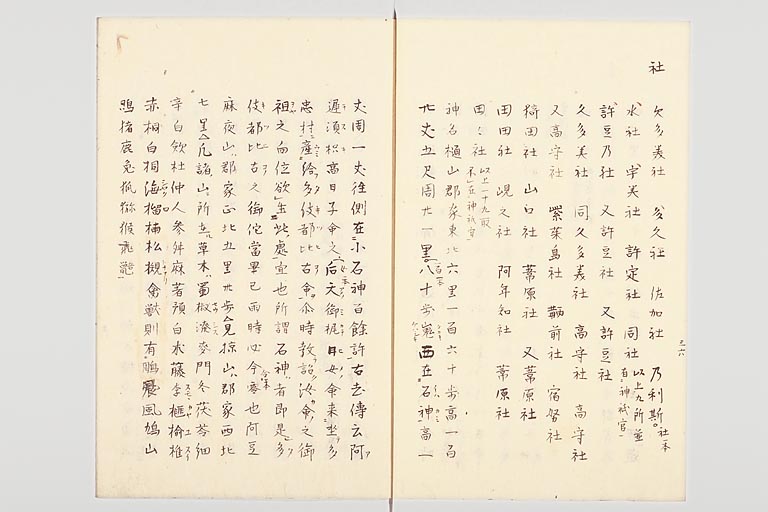 社
久多美社　多久社　佐加社　乃利斯社
水社　宇美社　許定社　同社　以上九所並在神祇官
許豆乃社　又許豆社　又許豆社
久多美社　同久多美社　高守社　高守社
又高守社　紫菜島社　鞆前社　宿努社
埼田社　山口社　葦原社　又葦原社
田田社　峴之社　阿年知社　葦原社
田々社　以上一十九所不在神祇官
神名樋山郡家東北六里一百六十歩高一百
廿丈五尺周廿一里八十歩嵬西在石神高一
丈周一丈往側在小石神百餘許古老傳云阿
遲須枳高日子命之后天御梶日女命来坐多
忠村産給多伎都比古命尒時教詔汝命之御
祖之向位欲生此處宜也所謂石神者即是多
伎都比古之御佗當旱已雨時必令零也阿豆
麻夜山郡家正北五里卅歩見掠山郡家西北
七里凡諸山所在草木蜀椒漆麥門冬茯苓細
辛白歛杜仲人参舛麻著預白朮藤李榧榆椎
赤桐白桐海榴楠松槻禽獣則有鵰晨風鳩山
鶏猪鹿兎狐獼猴飛鼯